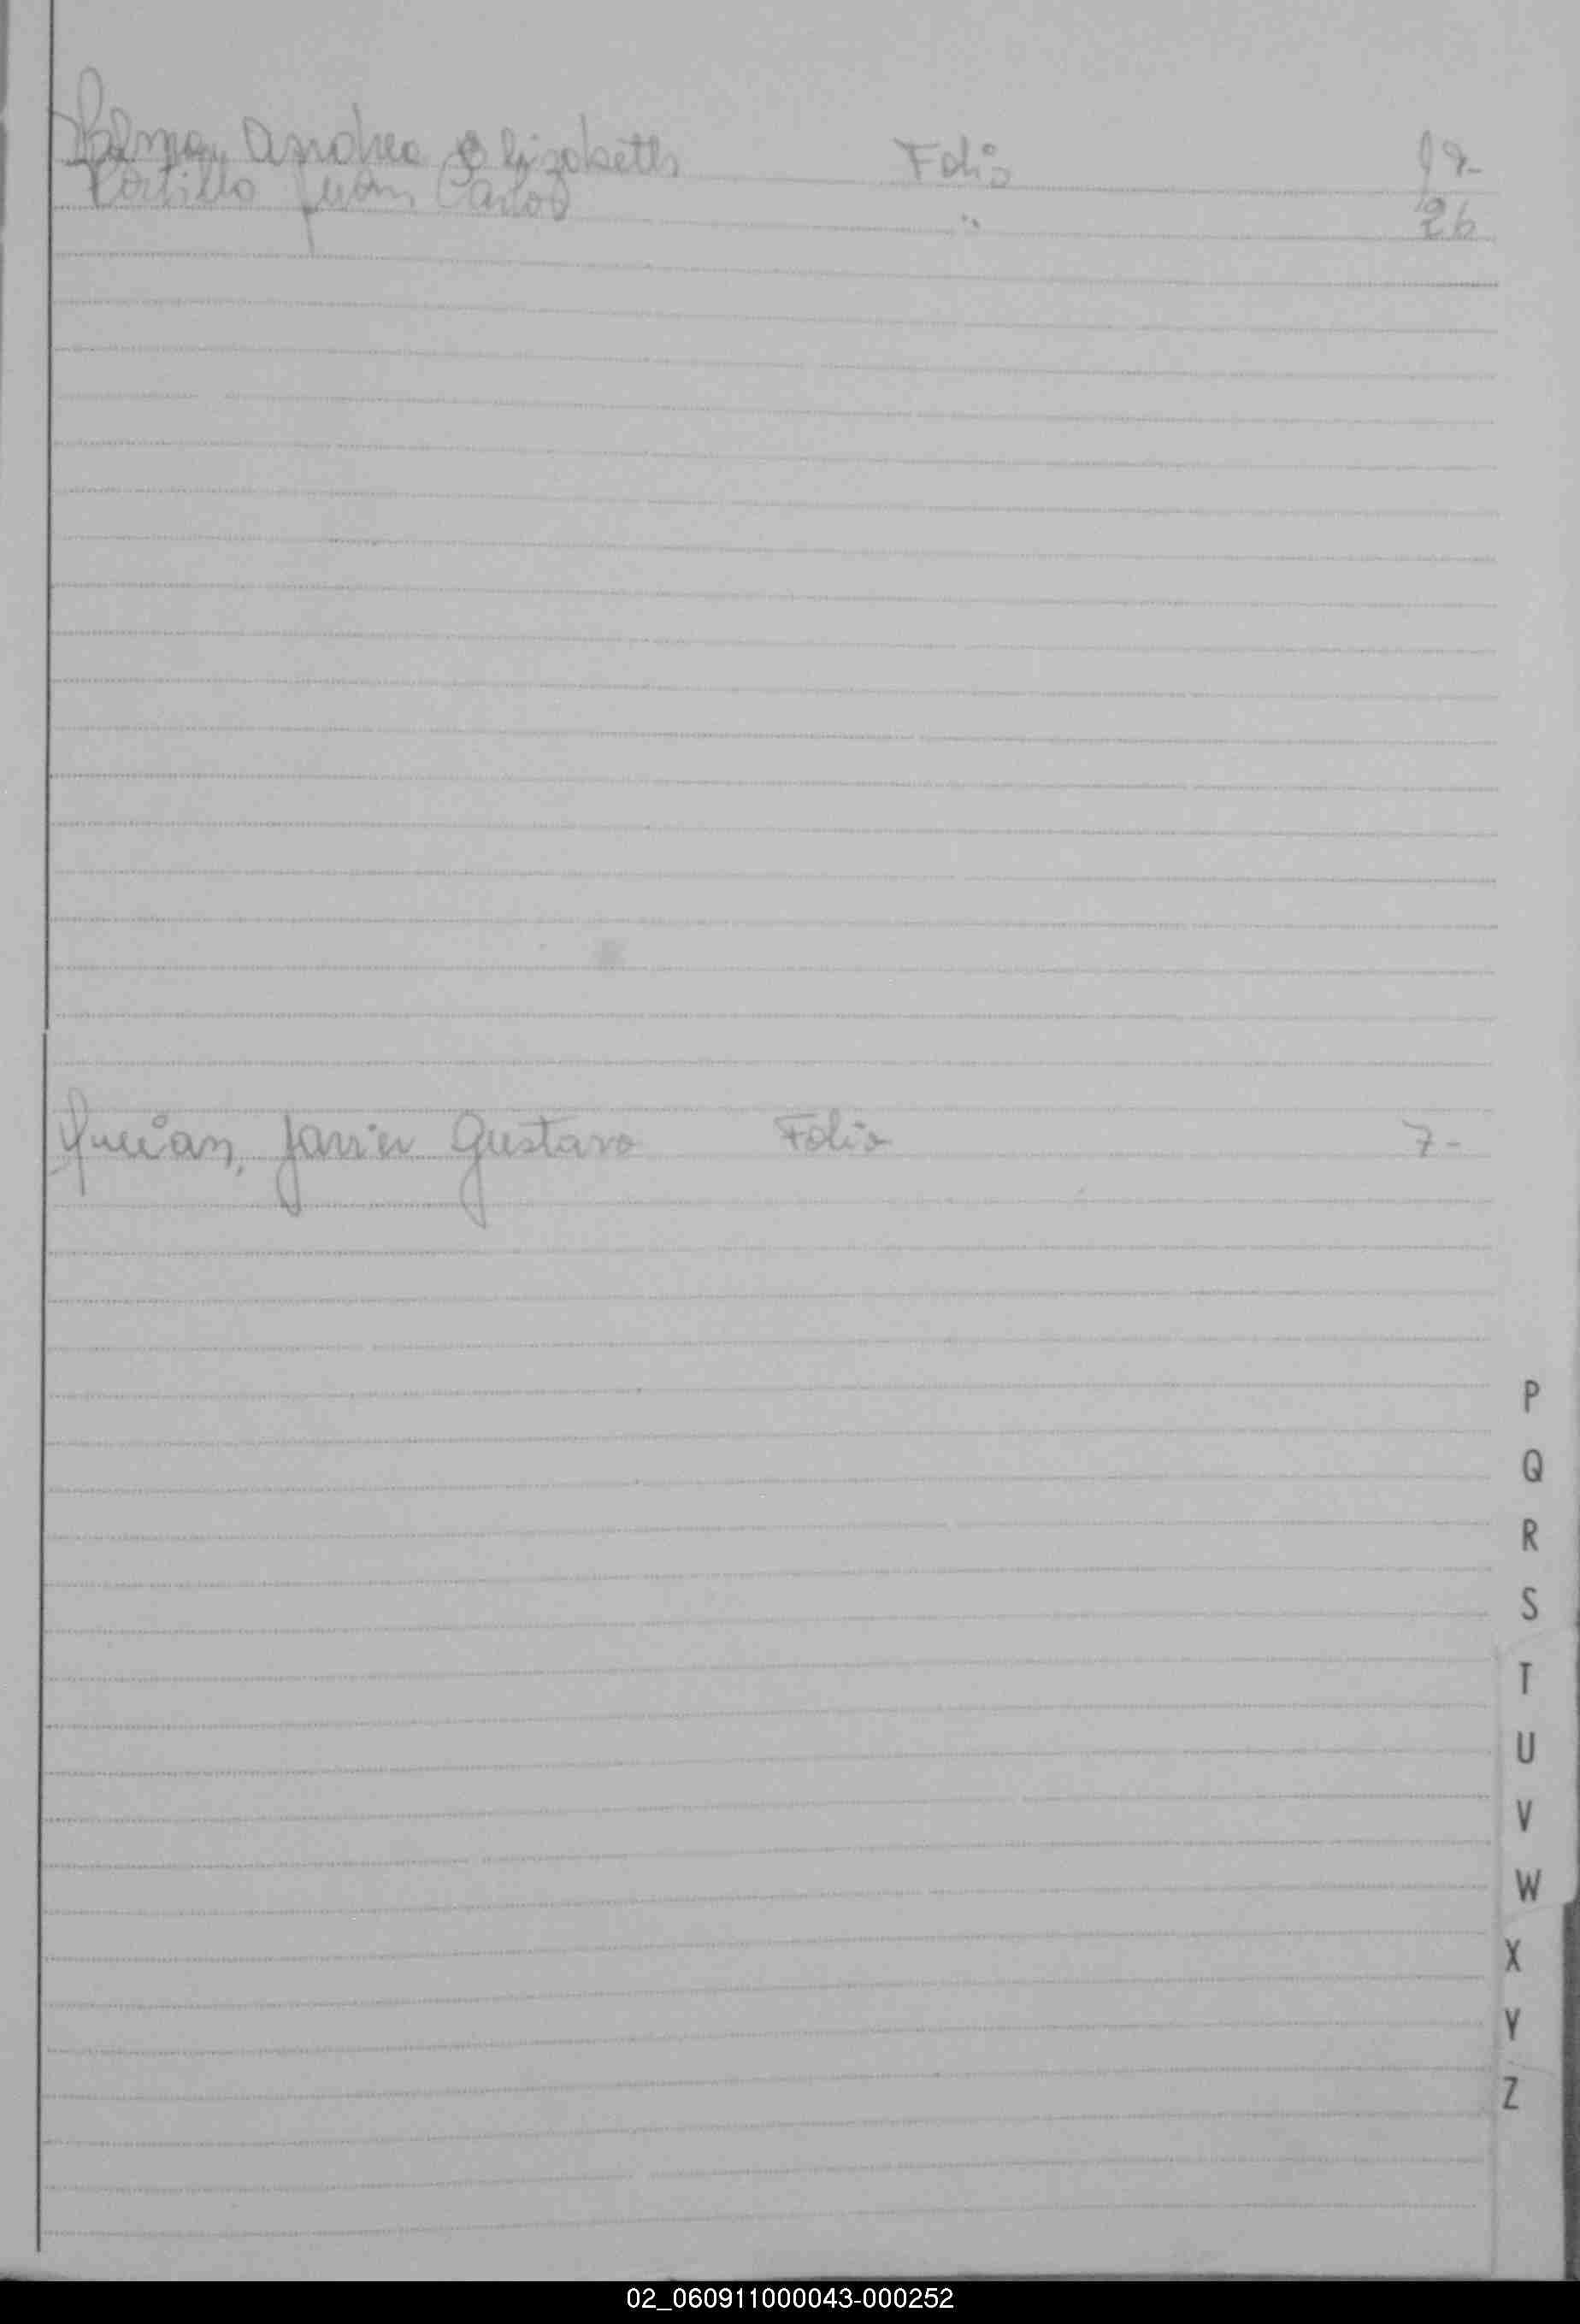 Palma, Andrea Elizabeth Folio
Portillo Juan Carlos " 26
Javier Gustavo Folio 7-
P
Q
R
S
T
U
V
W
X
Y
Z
02_060911000043-000252